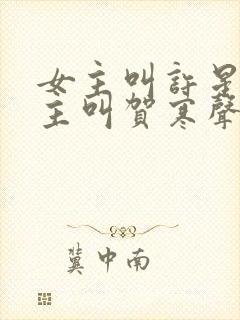 女主叫許星
主叫賀寒聲
冀中南